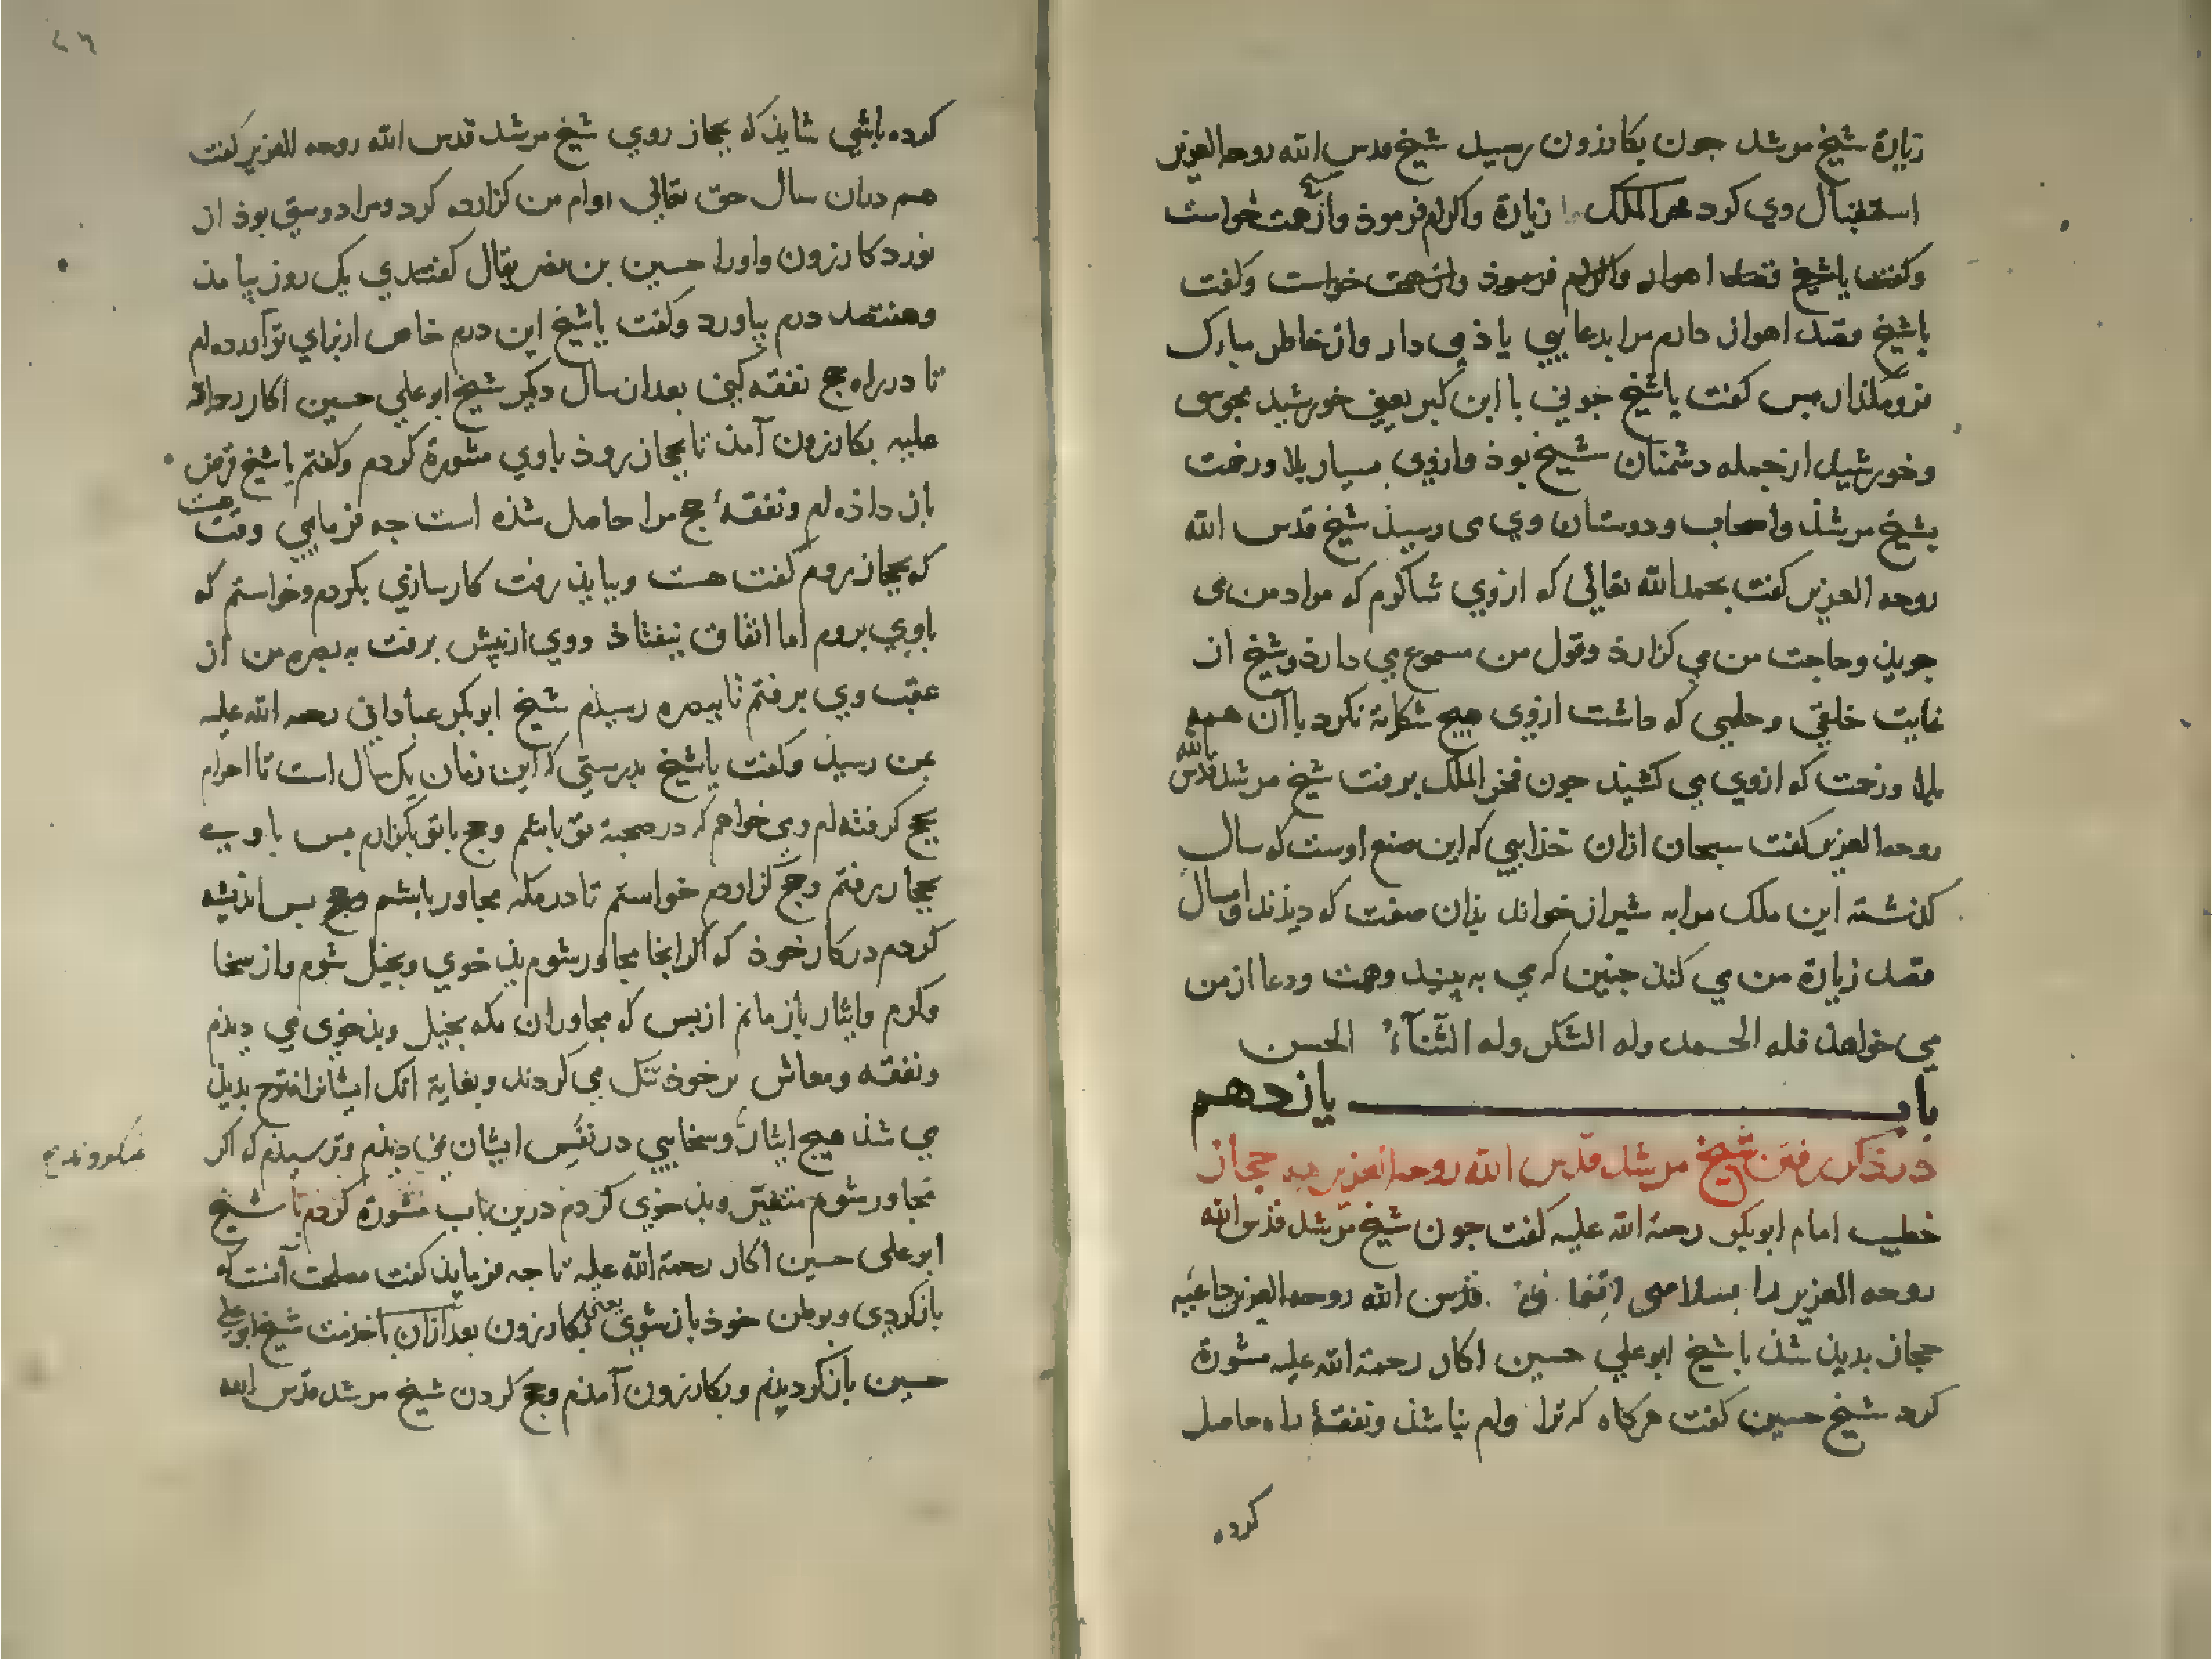 زیارة شیخ مرشد جون بکازرون رسید شیخ قدس الله روحه العزیز
استقبال وی کرد فخر الملک را زیارة واکرام فرموذ وازو همت خواست
وکفت یا شیخ قصد اهواز واکرام فرموذ وازو همت خواست وکفت
یا شیخ قصد اهواز دارم مرا بدعایی یاذ می دار واز خاطر مبارک
فرو مکذار بس کفت یا شیخ جونی با این کبر یعنی خورشید مجوسی
وخورشید از جمله دشمنان شیخ بوذ وازوی بسیار بلا وزحمت
بشیخ مرشد واصحاب ودوستان وی می رسید شیخ قدس الله
روحه العزیز کفت بحمد الله تعالی که ازوی شاکرم که مراد من می
جوید وحاجت من می کزارد وقول من مسموع می دارد وشیخ از
غایت خلقی وحلمی که داشت ازوی هیج شکایة نکرد با آن همه
بلا وزحمت که ازوی می کشیذ جون فخر الملک برفت شیخ مرشد قدس الله
روحه العزیز کفت سبحان ازان خذایی که این صنع اوست که سال
کذشته این ملک مرا به شیراز خواند بذان صفت که دیذند وامسال
قصد زیارة من می کند جنین که می به بینید وهمت ودعا از من
می خواهد فله الحمد وله الشکر وله الثنآء الحسن
باب یازدهم
در ذکر رفتن شیخ مرشد قدس الله روحه العزیز به حجاز
خطیب امام ابوبکر رحمة الله علیه کفت جون شیخ مرشد قدس الله
روحه العزیز را قدس الله روحه العزیز داعیه
حجاز بدید شد با شیخ ابوعلی حسین اکار رحمة الله علیه مشورة
کرد شیخ حسین کفت هرکاه که ترا وام نباشد ونفقۀ راه حاصل
کرده
۲۶
کرده باشی شاید که بحجاز روی شیخ مرشد قدس الله روحه العزیز کفت
هم دران سال حق تعالی اوام من کزارده کرد ومرا دوستی بوذ از
نورد کازرون واورا حسین بن نصر بقال کفتندی یک روز بیامد
وهفتصد درم بیاورد وکفت یا شیخ این درم خاص از برای تو آورده ام
تا در راه حج نفقه کنی بعد ازان سال دیکر شیخ ابوعلی حسین اکار رحمة الله
علیه بکازرون آمد تا بحجاز روذ باوی مشورة کردم وکفتم یا شیخ قرض
باز داذه ام ونفقۀ حج مرا حاصل شذه است جه فرمایی وقت هست
که بحجاز روم کفت هست وبباید رفت کارسازی بکردم وخواستم که
باوی بروم اما اتفاق نیفتاذ ووی از پیش برفت به بصره من از
عقب وی برفتم تا ببصره رسیذم شیخ ابوبکر عبادانی رحمة الله علیه
بمن رسید وکفت یا شیخ بدرستی که این زمان یک سال است تا احرام
بحج کرفته ام ومی خواهم که در صحبة تو باشم وحج باتو بکزارم بس باوی
بحجاز برفتم وحج کزاردم خواستم تا در مکه مجاور باشم بس اندیشه
کردم در کار خوذ که اکر اینجا مجاور شوم بذ خوی وبخیل شوم واز سخا
وکرم وایثار باز مانم از بس که مجاوران مکه بخیل وبذخوی می دیذم
ونفقه ومعاش بر خوذ تنک می کردند وبغایة انک ایشانرا فتوح بدید
می شد هیج ایثار وسخایی در نفس ایشان نمی دیذم وترسیذم که اکر
مجاور شوم متغیر وبذ خوی کردم درین باب مشورة کردم با شیخ
ابوعلی حسین اکار رحمة الله علیه تا جه فرماید کفت مصلحت آنست که
بازکردی وبوطن خوذ باز شوی یعنی بکازرون بعد ازان باخدمت شیخ ابوعلی
حسین بازکردیذم وبکازرون آمدم وحج کردن شیخ مرشد قدس الله